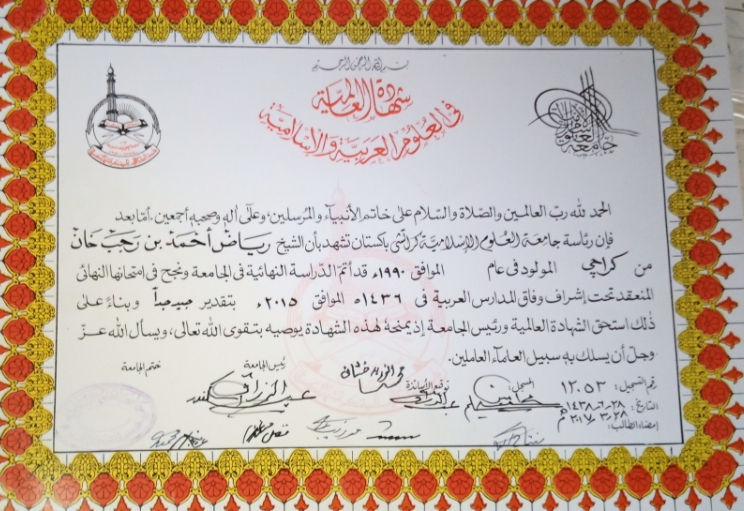 بسم الله الرحمن الرحيم
شهادة العالمية
في العلوم العربية والإسلامية
الحمد لله رب العالمين والصلاة والسلام على خاتم الأنبياء والمرسلين، وعلى آله وصحبه أجمعين. أما بعد
فإن رئاسة جامعة العلوم الإسلامية كراتشي باكستان تشهد بأن الشيخ رياض أحمد بن رجب خان
من كراچي المولود في عام الموافق ١٩٩٠ء قد أتم الدراسة النهائية في الجامعة ونجح في امتحانها النهائي
المنعقد تحت إشراف وفاق المدارس العربية في ١٤٣٦ه الموافق ٢٠١٥ء بتقدير جيد جداً وبناءً على
ذلك استحق الشهادة العالمية ورئيس الجامعة إذ يمنحه هذه الشهادة يوصيه بتقوى الله تعالى، ويسأل الله عزّ
وجلّ أن يسلك به سبيل العلماء العاملين.
رقم التسجيل: ١٢٠٥٣
المسجل:
توقيع الأساتذة
رئيس الجامعة
ختم الجامعة
التاريخ: ٢٨-٦-١٤٣٨ه
٢٨-٣-٢٠١٧م
إمضاء الطالب: